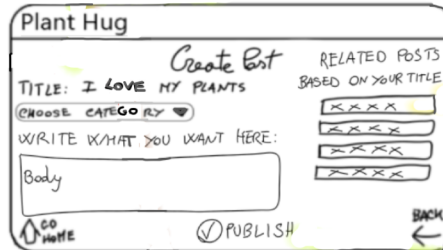 Plant Hug
Create Post
TITLE: I LOVE MY PLANTS
CHOOSE CATEGORY
WRITE WHAT YOU WANT HERE:
Body
GO
HOME
PUBLISH
RELATED POSTS
BASED ON YOUR TITLE
XXXX
XXXX
XXXX
XXXX
BACK